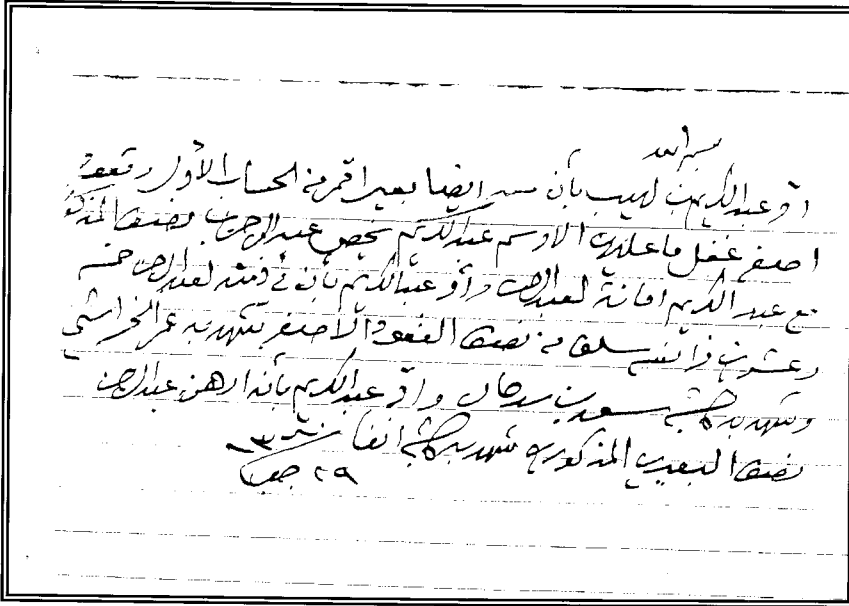 بسم الله
اقر عبدالكريم بن لهيب بأن بعيرا من الحساب الأول وقعود
اصفر غفل ما عليه الا وسم عبدالكريم يخص عبدالرحمن نصفها
مع عبدالكريم امانة لعبدالرحمن واقر عبدالكريم بأن في ذمته لعبدالرحمن خمسة
وعشرين فرانسه سلف من نصف القعود الاصفر شهد به عمر الخراشي
وشهد به كاتبه سعد بن واقر عبدالكريم بأنه ارهن عبدالرحمن
نصف البعيرين المذكورين شهد به كاتبه
٢٩